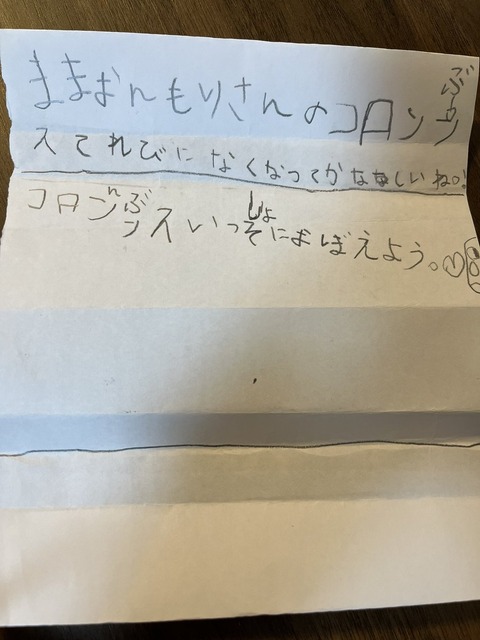 ままおんもりさんのコロンブーン
スてれびになくなってかななしいね。
コロンンブンスいっしょそにおぼえよう。♡